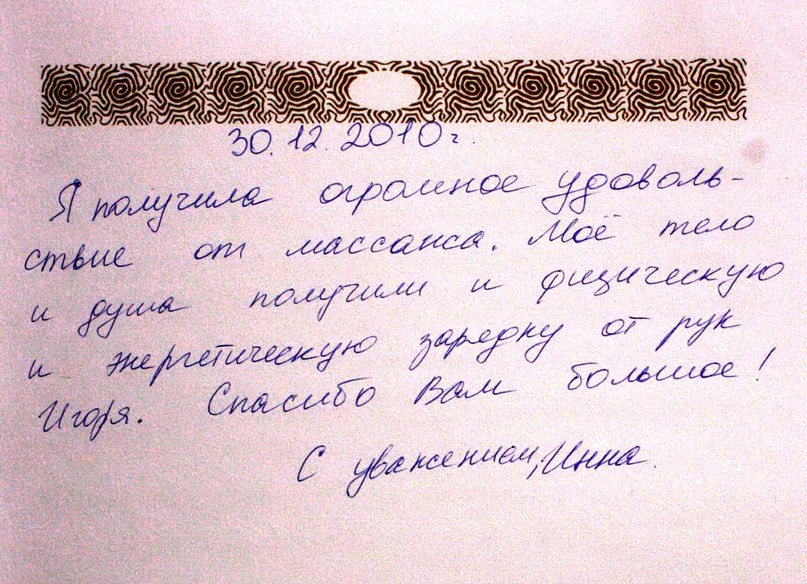 30.12.2010 г.
Я получила огромное удоволь-
ствие от массажа. Моё тело
и душа получили и физическую
и энергетическую зарядку от рук
Игоря. Спасибо Вам большое!
С уважением, Инна.